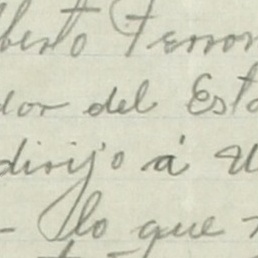 lberto Terron
dor del Esta
dirijo á U
- lo que